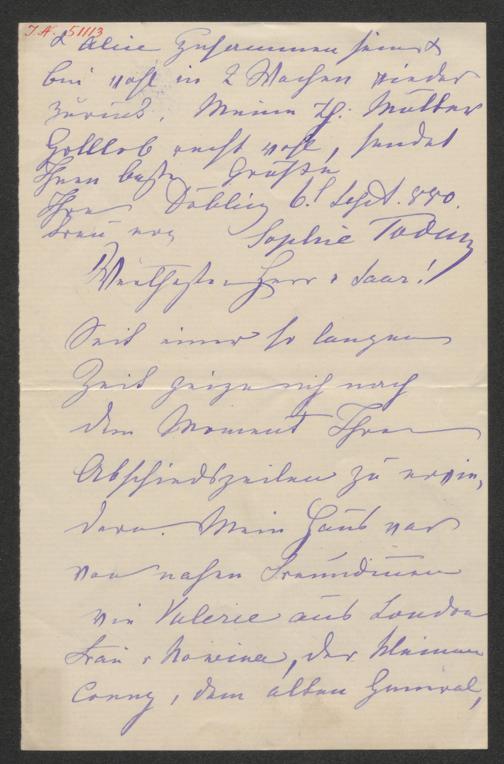 I.N. 51113
& Alice zusammen sein &
bin wohl in 2 Wochen wieder
zurück. Meine Mutter
Gottlob recht wohl, sendet
Ihnen beste Grüße
Ihre Döbling 6! Sept. 880.
Sophie Todesco
Werthester Herr v Saar!
Seit einer so langen
Zeit geize ich nach
dem Moment Ihre
Abschiedszeilen zu erwie,
dern. Mein Haus war
von nahen Freundinen
wie Valerie aus London
Frau v Nowina, der kleinen
Conny, dem alten General,